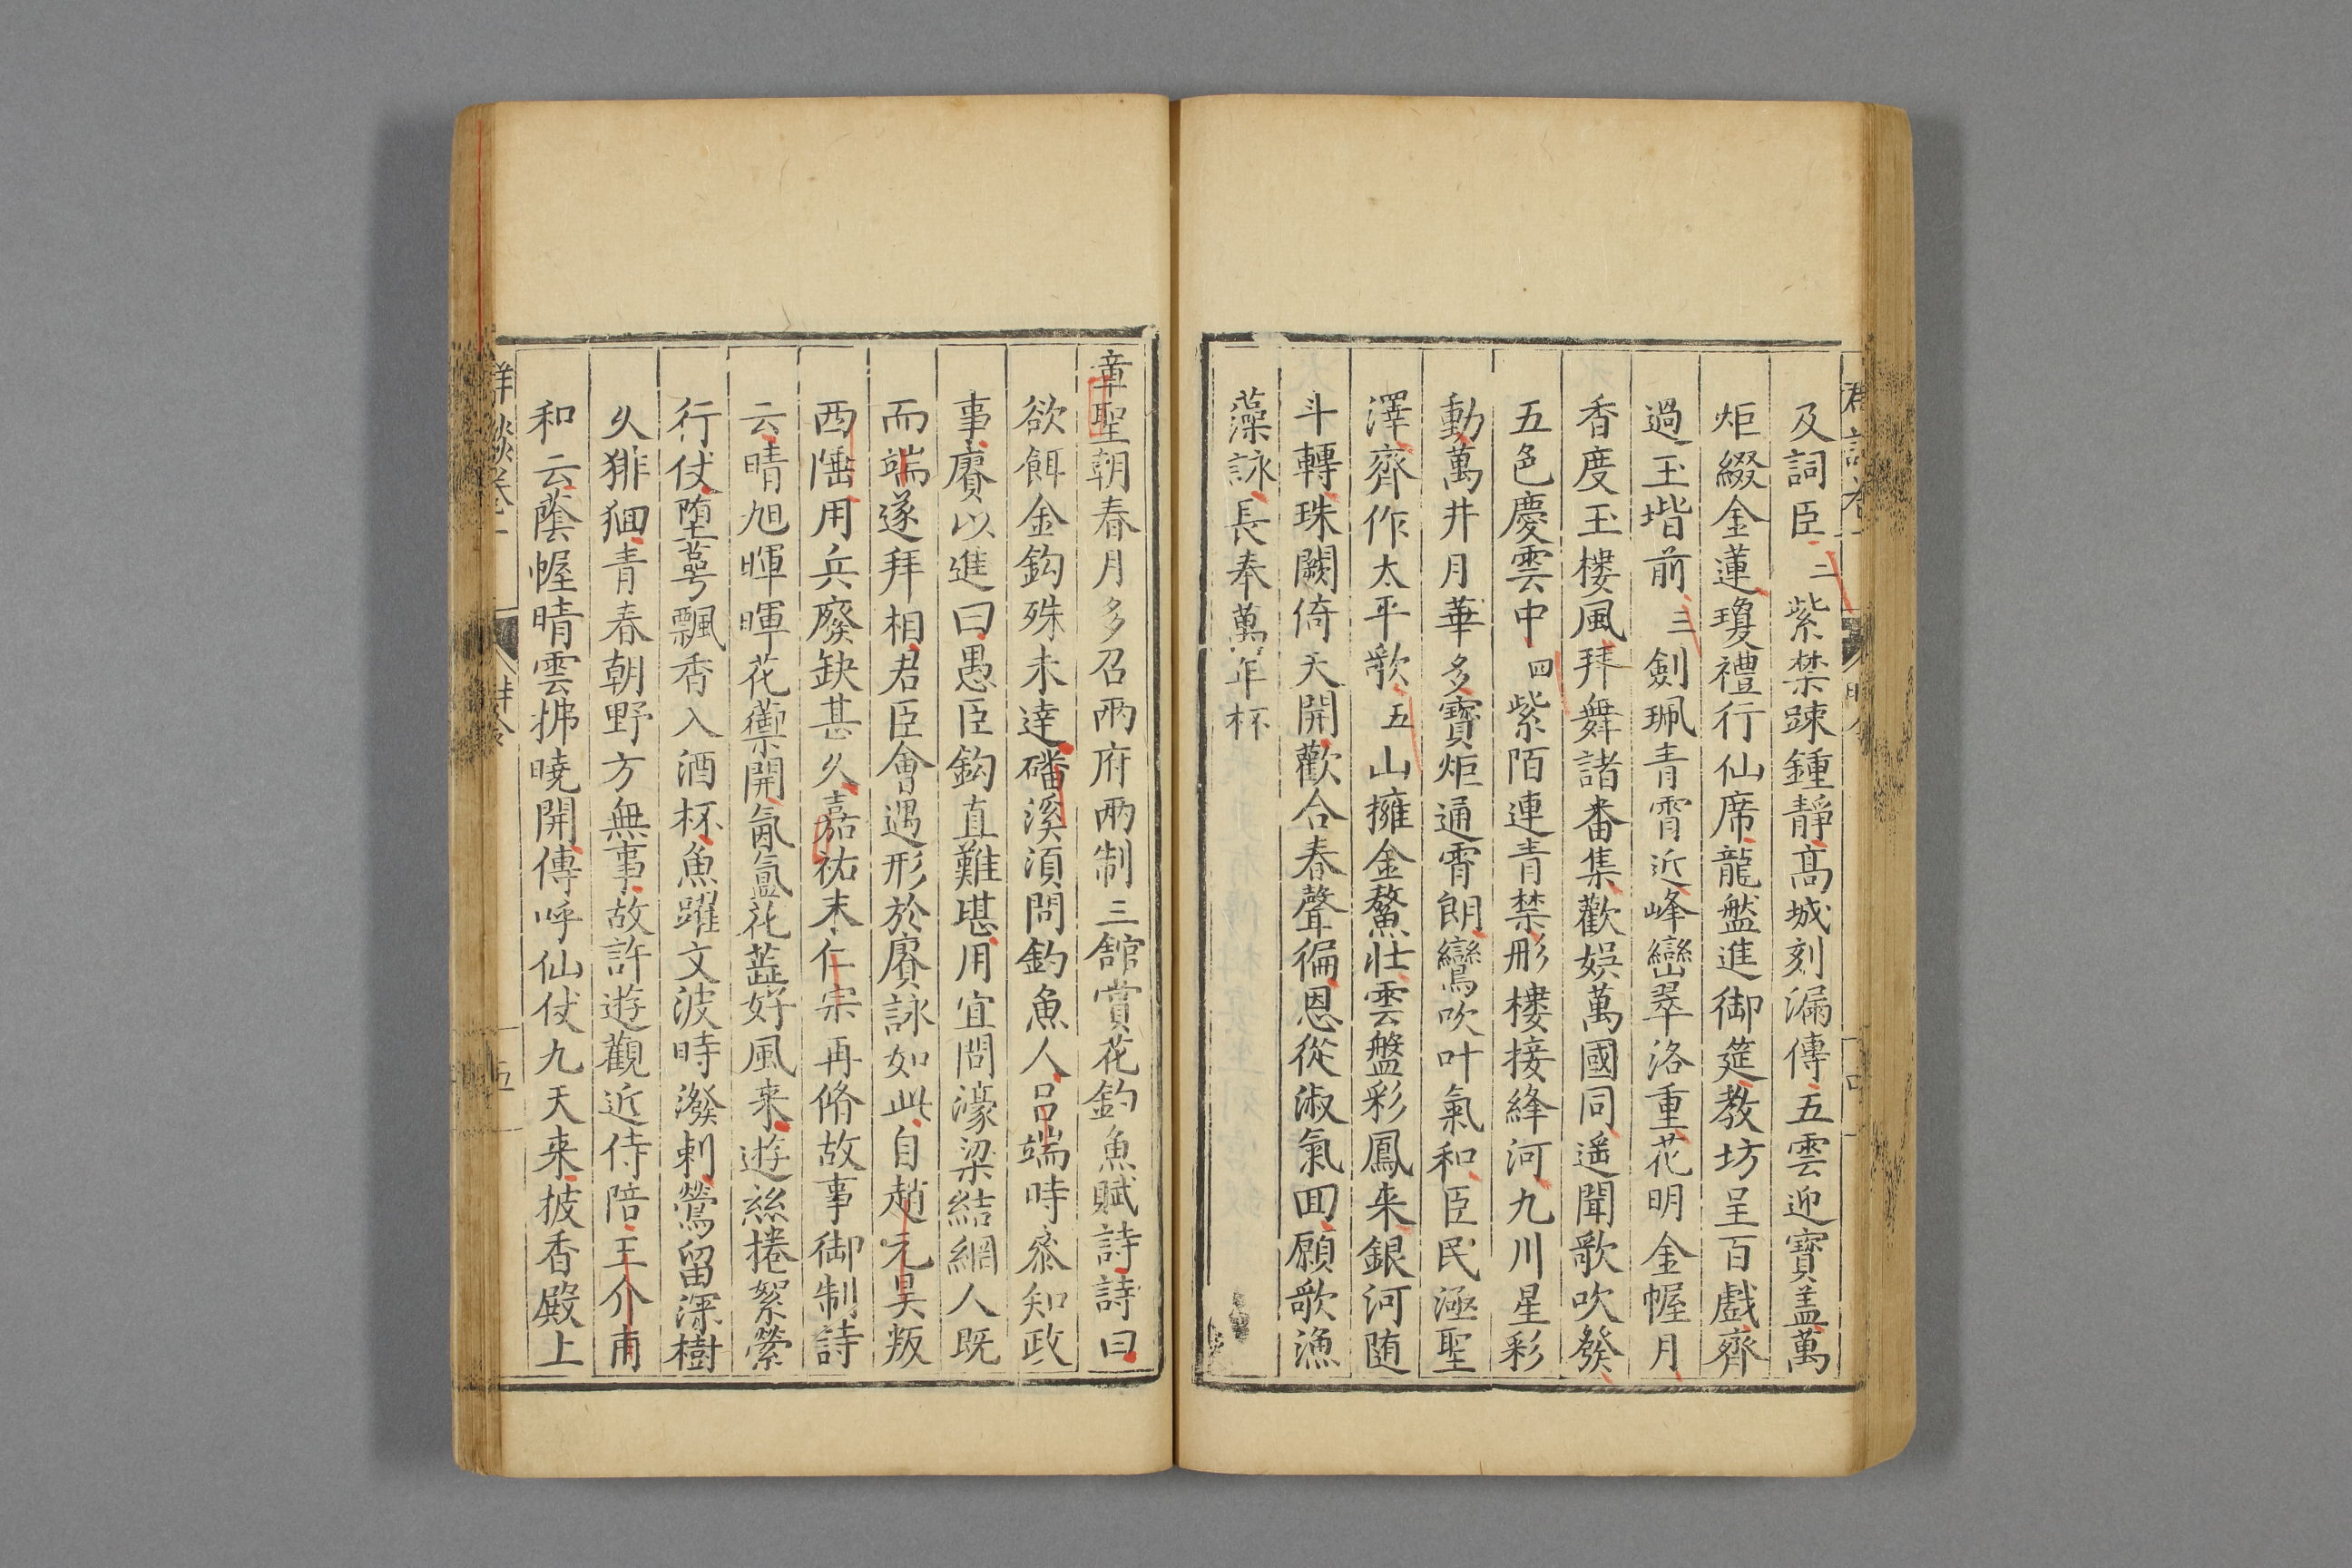 及詞臣二紫禁踈鍾靜高城刻漏傳五雲迎寶盖萬
炬綴金蓮瓊禮行仙席龍盤進御筵教坊呈百戲齊
過玉堦前三劍珮青霄近峰巒翠洛重花明金幄月
香度玉樓風拜舞諸番集歡娛萬國同遥聞歌吹發
五色慶雲中四紫陌連青禁彤樓接絳河九川星彩
動萬井月華多寶炬通霄朗鸞吹叶氣和臣民涵聖
澤齊作太平歌五山擁金鰲壯雲盤彩鳳来銀河随
斗轉珠闕倚天開歡合春聲徧恩從淑氣回願歌漁
藻詠長奉萬年杯
章聖朝春月多召兩府兩制三舘賞花釣魚賦詩詩曰
欲餌金鈎殊未達磻溪須問釣魚人吕端時叅知政
事賡以進曰愚臣鈎直難堪用宜問濠梁結網人既
而端遂拜相君臣會遇形於賡詠如此自趙元昊叛
西陲用兵廢缺甚久嘉祐末仁宗再脩故事御制詩
云晴旭暉暉花籞開氤氲花蕋好風来遊絲捲絮縈
行仗堕蕚飄香入酒杯魚躍文波時潑剌鶯留深樹
久徘徊青春朝野方無事故許遊觀近侍陪王介甫
和云蔭幄晴雲拂曉開傳呼仙仗九天来披香殿上
五